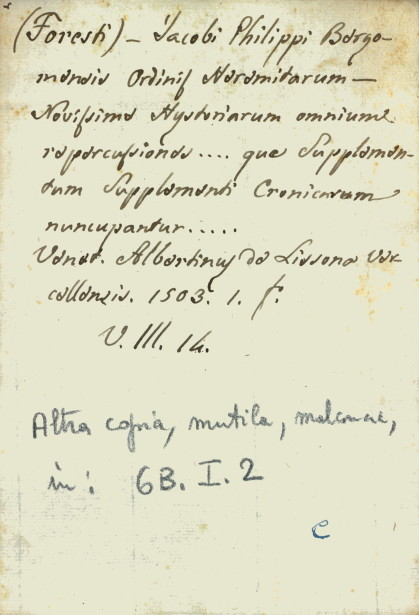 (Foresti) – Jacobi Philippi Bergo-
mensis Ordinis Heremitarum –
Novissime Hystoriarum omnium
repercussiones .... que Supplemen-
tum Supplementi Cronicarum
nuncupantur .....
Venet. Albertinus de Lissona Ver-
cellensis. 1503. 1. f.
V. III. 14.
Altra copia, mutila, malconcia,
in: 6B. I. 2
C